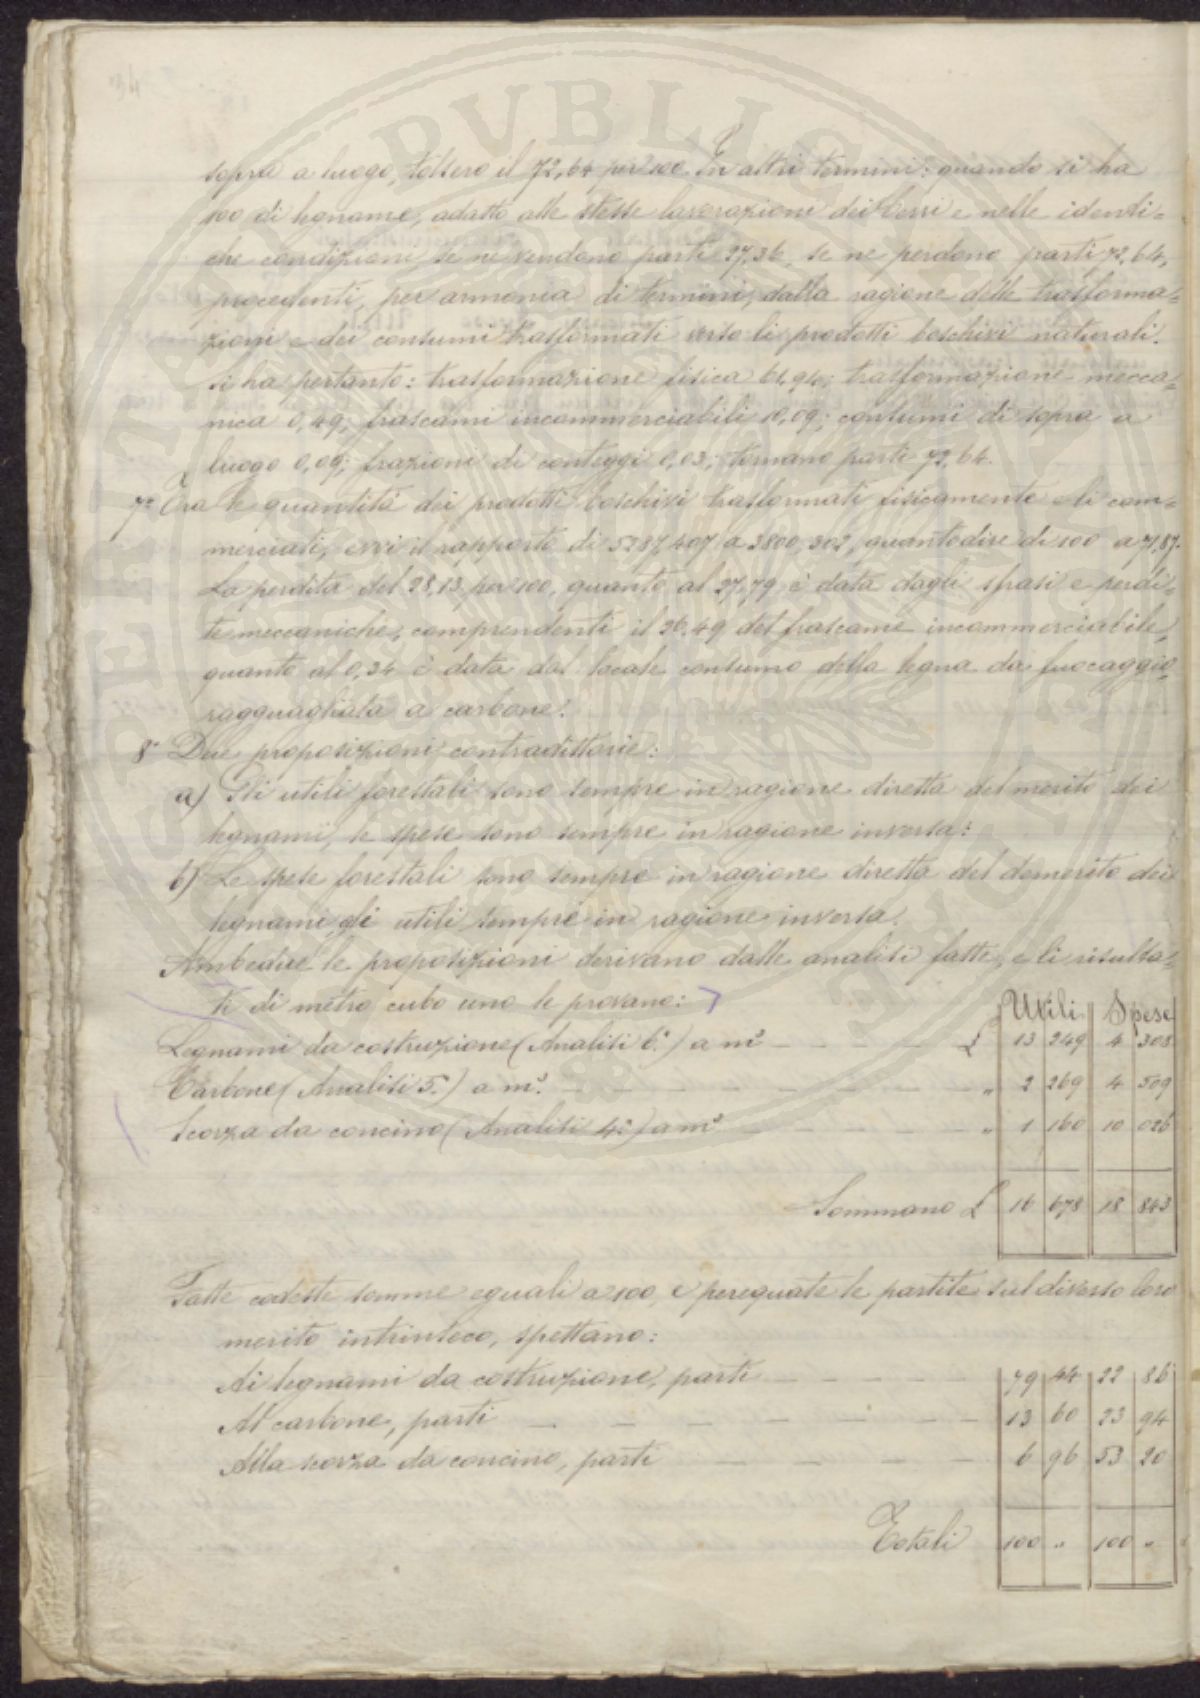 34
sopra a luogo, tolsero il 72,64 per 100. In altri termini: quando si ha
100 di legname, adatto alle stesse lavorazioni dei Cerri e nelle identi=
che condizioni, se ne vendono parti 27,36, se ne perdono parti 72,64,
procedenti, per armonia di termini, dalla ragione delle trasforma=
zioni e dei consumi trasformati verso li prodotti boschivi naturali.
si ha pertanto: trasformazione fisica 61,94; trasformazione mecca=
nica 0,49; frascami incommerciabili 10,09; consumi di sopra a
luogo 0,09; frazioni di conteggi 0,03; tornano parti 72,64.
7° Tra le quantità dei prodotti boschivi trasformati fisicamente e li com=
merciati, evvi il rapporto di 5287,407 a 3800,302, quantodire di 100 a 71,87.
La perdita del 28,13 per 100, quanto al 27,79 è data dagli sfrasi e perdi=
te meccaniche, comprendenti il 26,49 del frascame incommerciabile,
quanto al 0,34 è data dal locale consumo della legna da fuocaggio
ragguagliata a carbone.
8° Due proposizioni contradittorie:
a) Gli utili forestali sono sempre in ragione diretta del merito dei
legnami, le spese sono sempre in ragione inversa:
b) Le spese forestali sono sempre in ragione diretta del demerito dei
legnami gli utili sempre in ragione inversa.
Ambedue le proposizioni derivano dalle analisi fatte, e li risulta=
ti di metro cubo uno le provano:
Utili Spese
Legnami da costruzione (Analisi 6ª) a m³ £ 13 249 4 308
Carbone (Analisi 5ª) a m³ " 2 269 4 509
Scorza da concino (Analisi 4ª) a m³ " 1 160 10 026
Sommano £ 16 678 18 843
Fatte codeste somme eguali a 100, e perequate le partite sul diverso loro
merito intrinseco, spettano:
Ai legnami da costruzione, parti 79 44 22 86
Al carbone, parti 13 60 23 94
Alla scorza da concino, parti 6 96 53 20
Totali 100 " 100 "